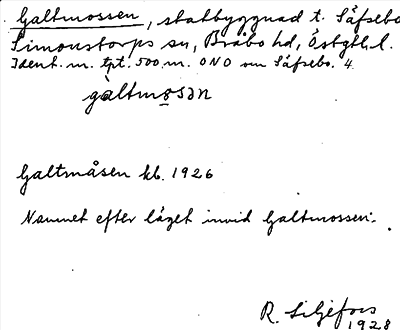 Galtmossen, statbyggnad t. Säfsebo
Simonstorps sn, Bråbo hd, Östgtl. l.
Ident. m. tpt. 500 m. ONO om Säfsebo. 4.
gàltmo̲sən
Galtmåsen kb. 1926
Namnet efter läget invid Galtmossen.
R. Liljefors
1928